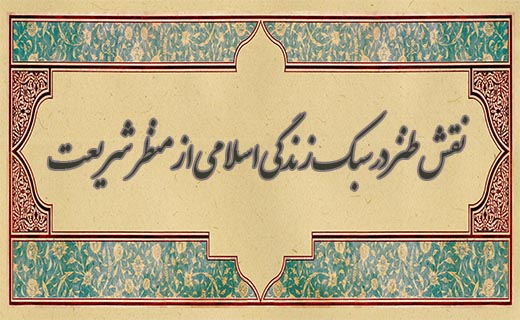 نقش طنز در سبک زندگی اسلامی از منظر شریعت